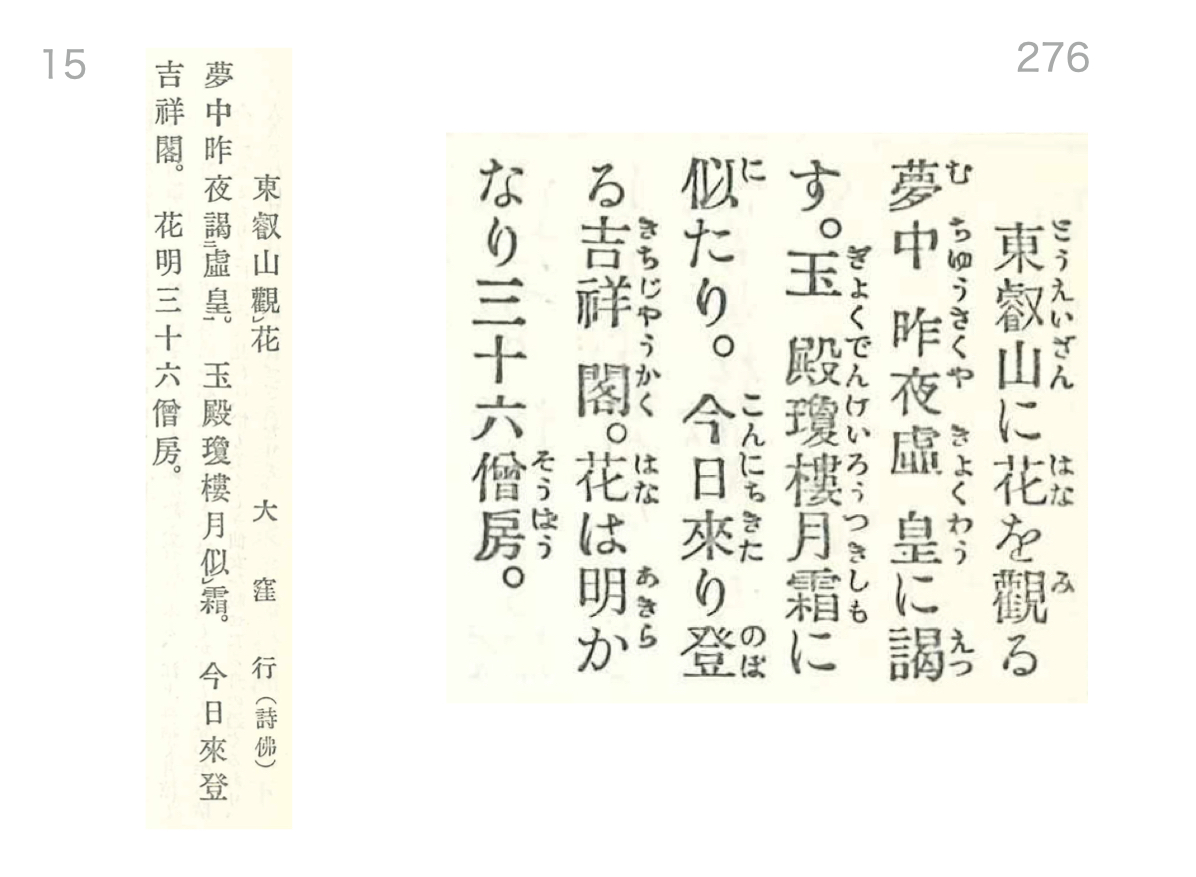 15
東叡山觀花 大窪行(詩佛)
夢中昨夜謁虛皇。 玉殿瓊樓月似霜。 今日來登
吉祥閣。 花明三十六僧房。
276
東叡山に花を觀る
とうえいざん はな み
夢中昨夜虛皇に謁
むちゆうさくやきよくわう えつ
す。玉殿瓊樓月霜に
ぎよくでんけいろうつきしも
似たり。今日來り登
に こんにちきた のぼ
る吉祥閣。花は明か
きちじやうかく はな あきら
なり三十六僧房。
そうばう